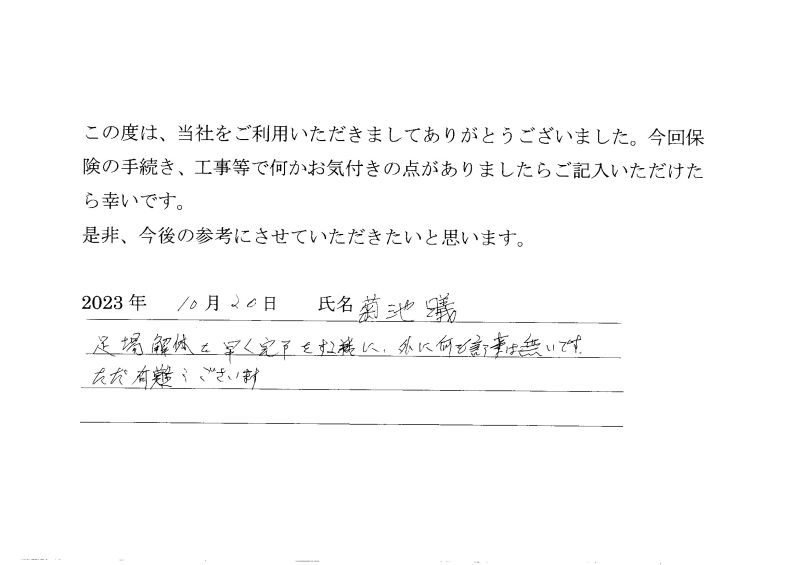 この度は、当社をご利用いただきましてありがとうございました。今回保
険の手続き、工事等で何かお気付きの点がありましたらご記入いただけた
ら幸いです。
是非、今後の参考にさせていただきたいと思います。
2023年 10月20日 氏名 菊池 曦
足場解体を早く完了をする様に、外に何も言う事は無いです
ただ有難うございます